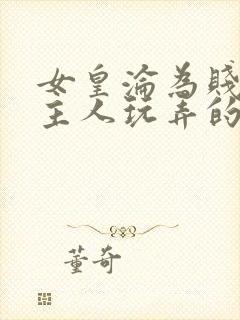 女皇淪為賤
主人玩弄的
董奇